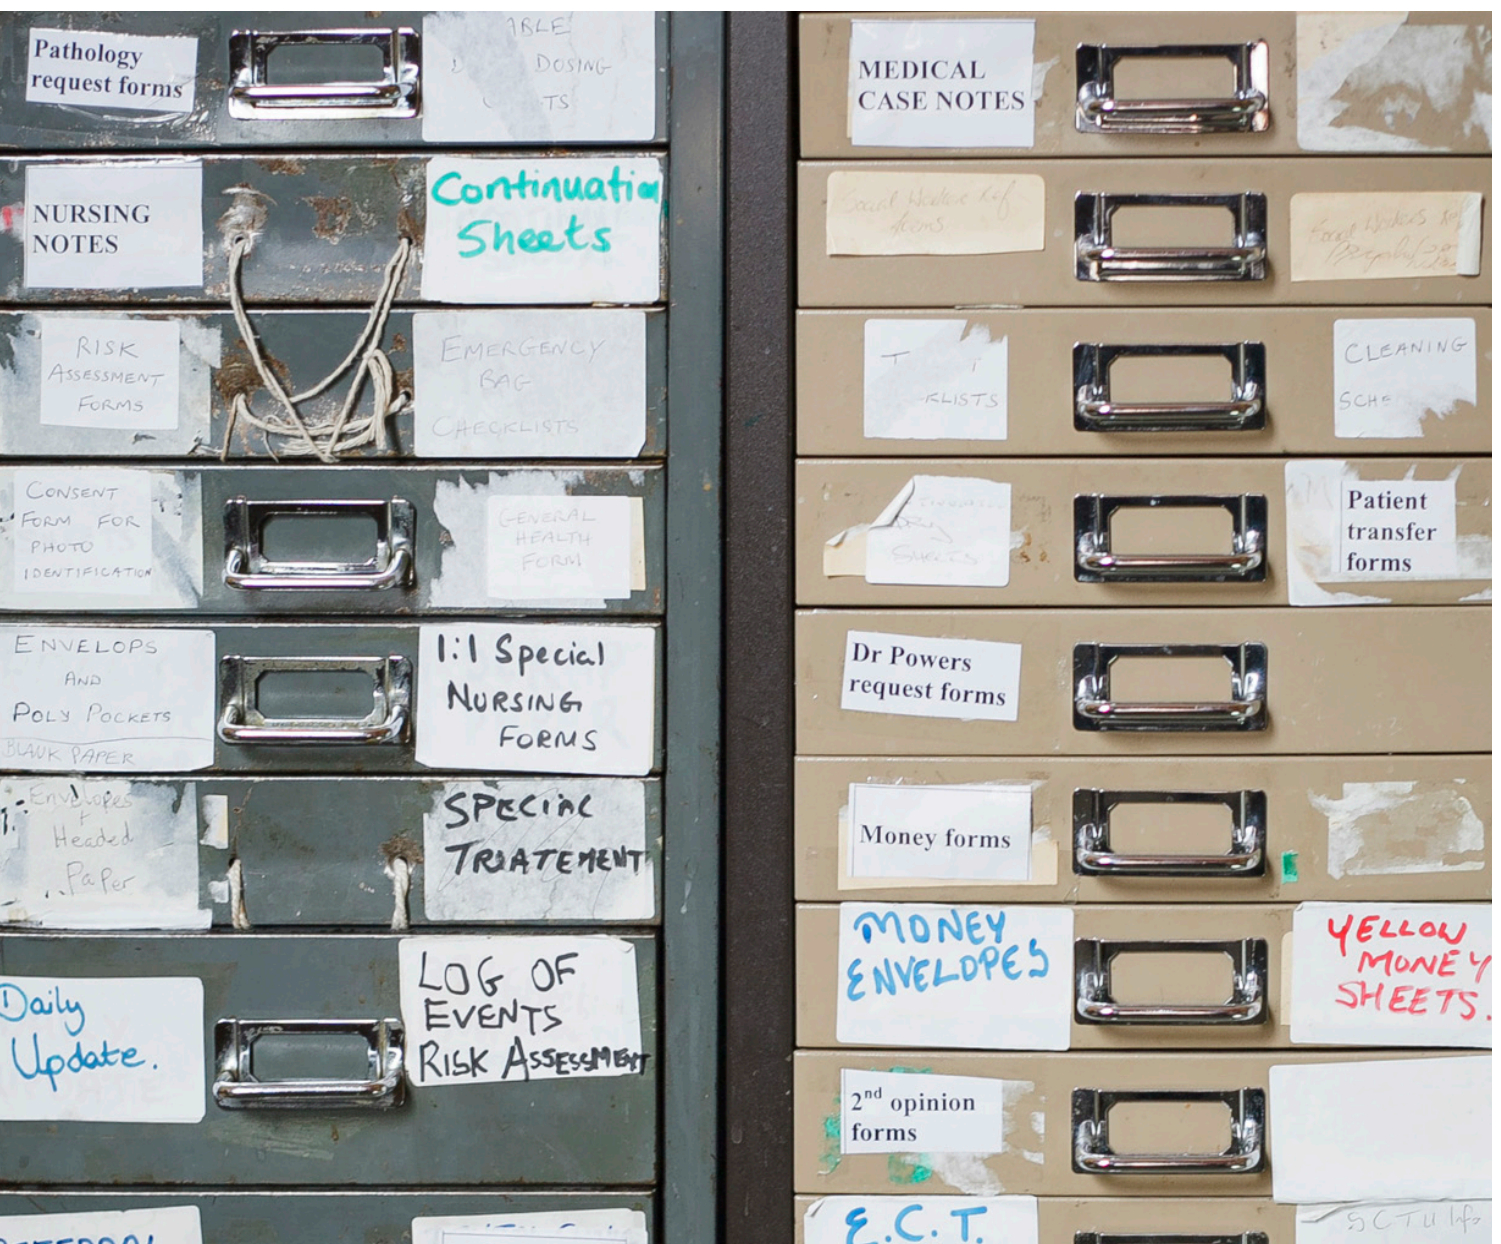 Pathology
request forms
DOSING
NURSING
NOTES
Continuatio
Sheets
RISK
ASSESSMENT
FORMS
EMERGENCY
BAG
CHECKLISTS
CONSENT
FORM FOR
PHOTO
IDENTIFICATION
GENERAL
HEALTH
FORM
ENVELOPS
AND
POLY POCKETS
BLANK PAPER
1:1 Special
NURSING
FORMS
Envelopes
+
Headed
Paper
SPECIAL
TRIATEMENT
Daily
Update.
LOG OF
EVENTS
RISK ASSESSMENT
MEDICAL
CASE NOTES
Social Workers Ref
forms
Social Workers Ref
CLEANING
SHEETS
Patient
transfer
forms
Dr Powers
request forms
Money forms
MONEY
ENVELOPES
YELLOW
MONEY
SHEETS.
2nd opinion
forms
E.C.T.